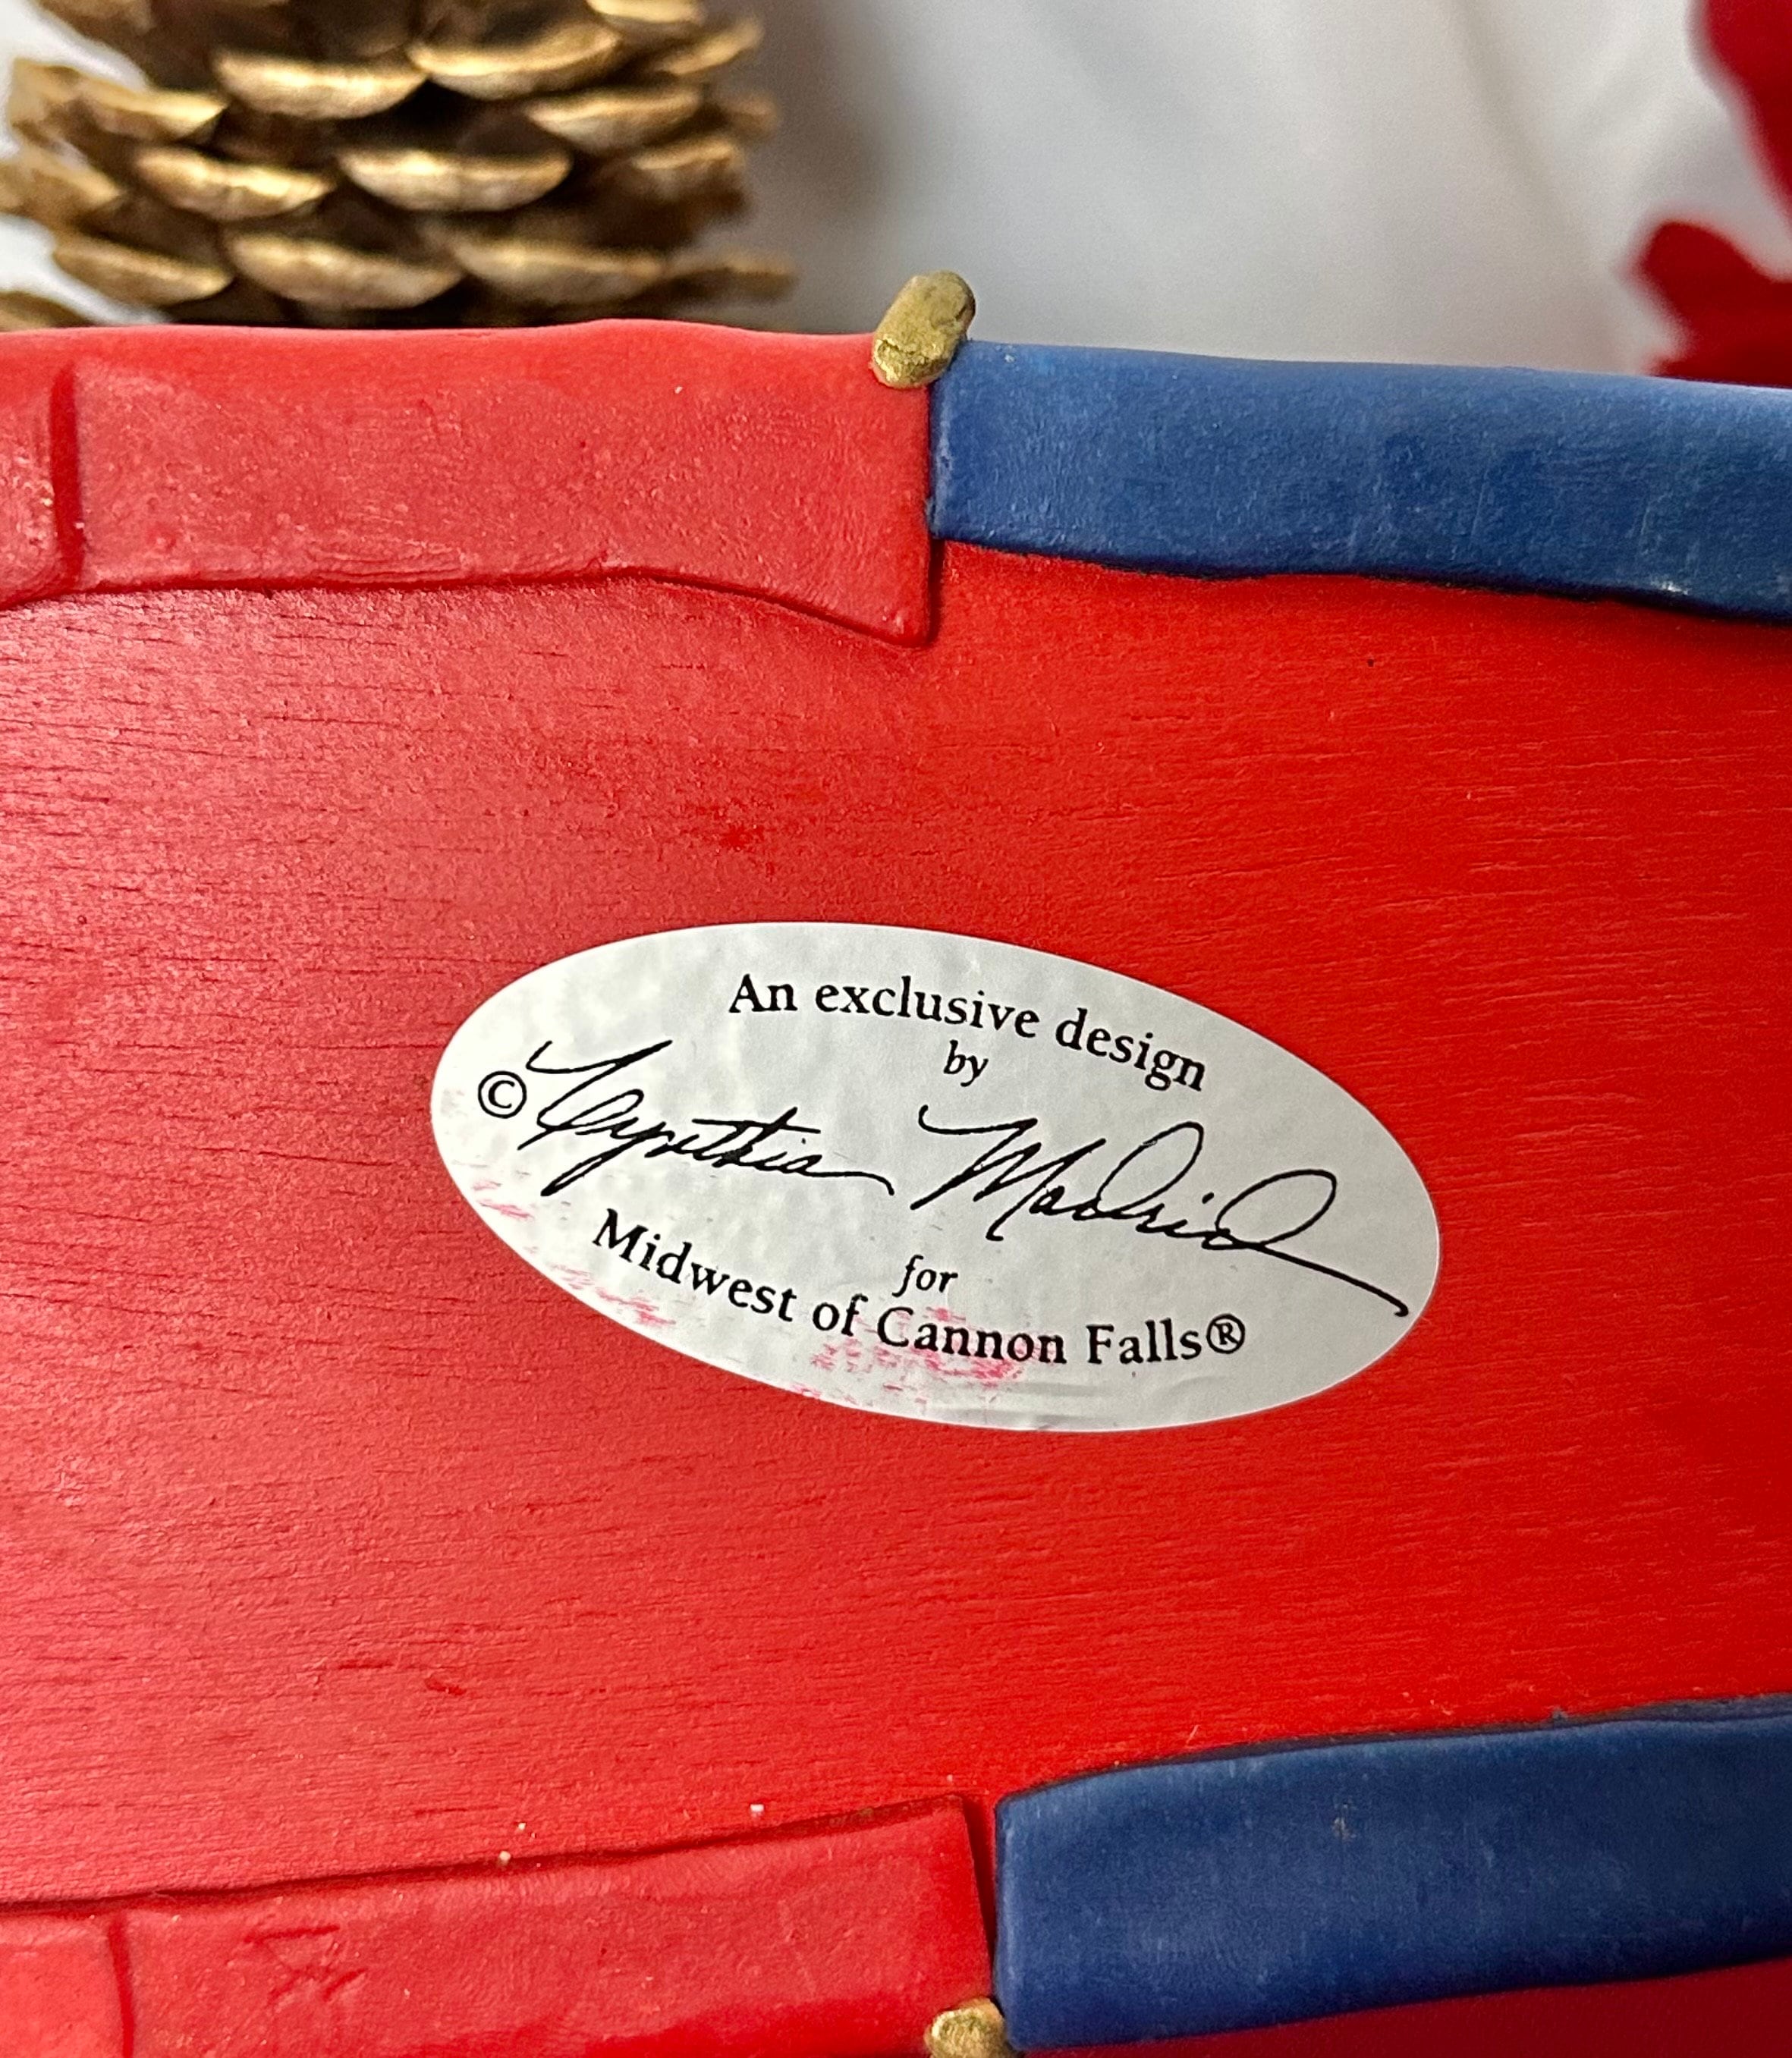 An exclusive design
by
© Cynthia Madrid
for
Midwest of Cannon Falls®